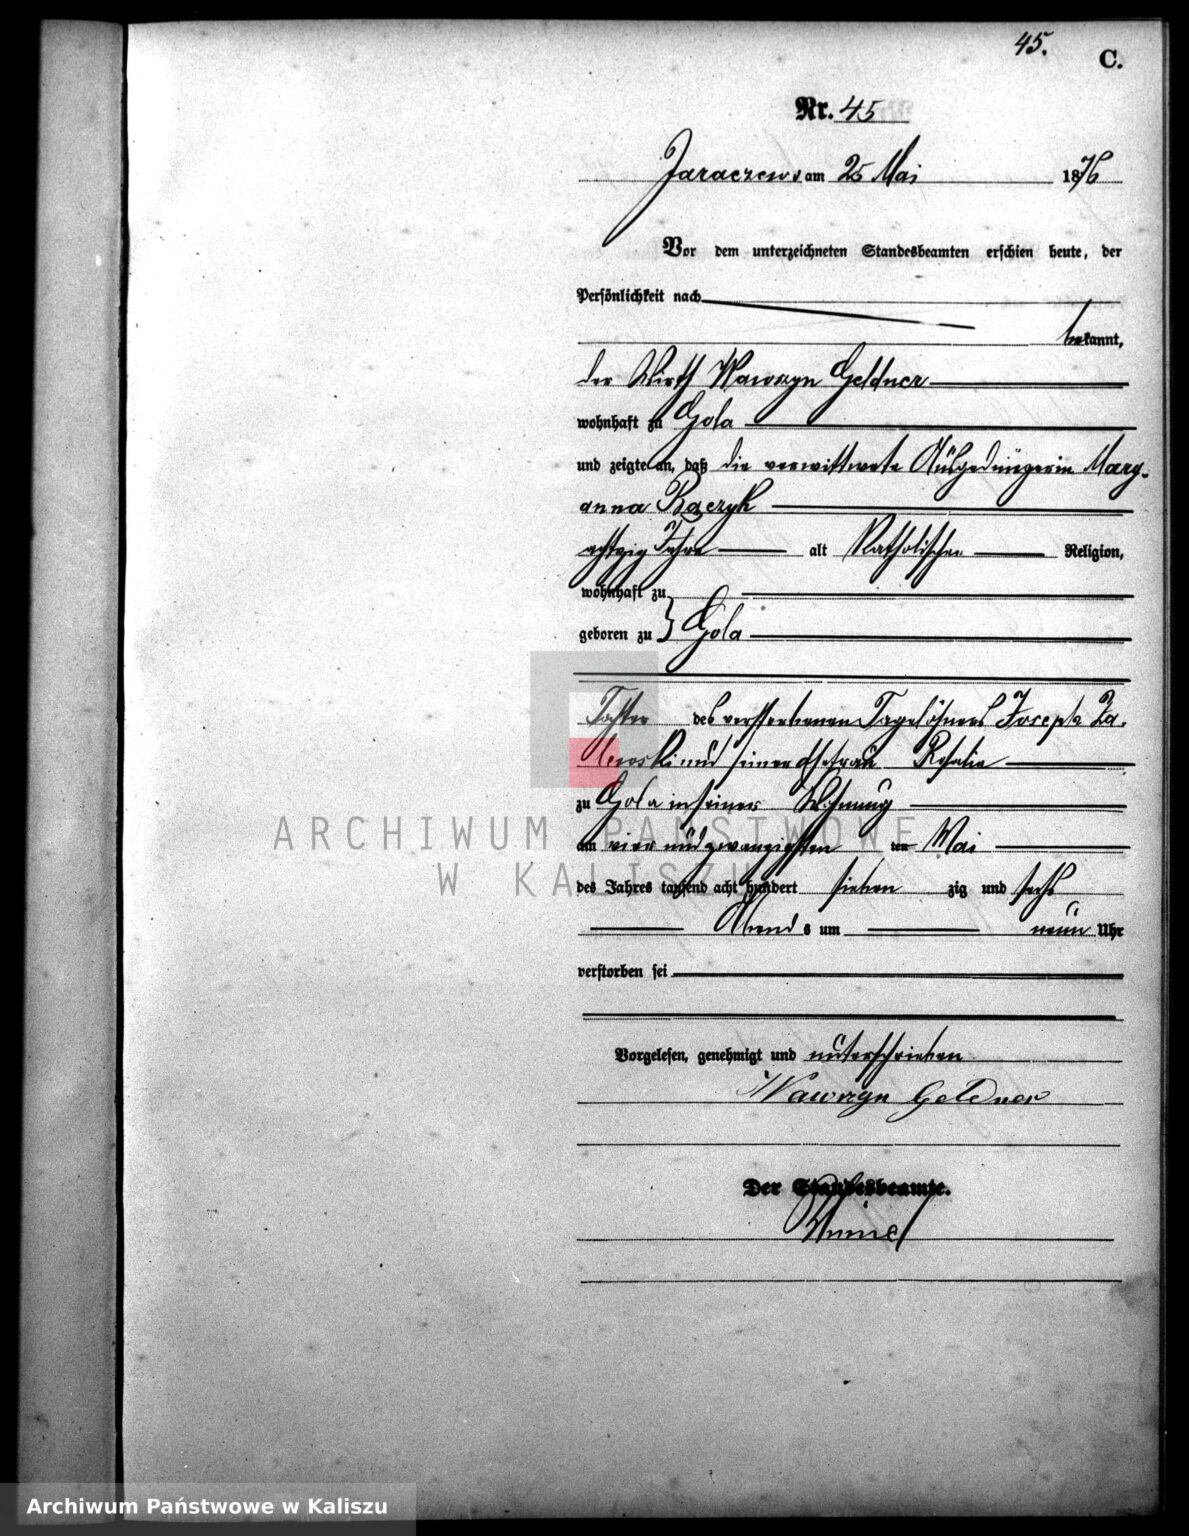 45.
C.
Nr. 45
Jaraczewo am 25 Mai 1876
Vor dem unterzeichneten Standesbeamten erschien heute, der
Persönlichkeit nach
bekannt,
der Wirth Wawrzyn Geldner
wohnhaft zu Gola
und zeigte an, daß die verwittwete Ausgedingerin Mary-
anna Raczyk
achtzig Jahre alt Katholischer Religion,
wohnhaft zu
geboren zu } Gola
Tochter des verstorbenen Tagelöhners Joseph Za-
lewski und seiner Ehefrau Rosalie
zu Gola in seiner Wohnung
am vier und zwanzigsten ten Mai
des Jahres tausend acht hundert sieben zig und sechs
Abend s um neun Uhr
verstorben sei
Vorgelesen, genehmigt und unterschrieben
Wawrzyn Geldner
Der Standesbeamte.
ARCHIWUM PAŃSTWOWE
W KALISZU
Archiwum Państwowe w Kaliszu